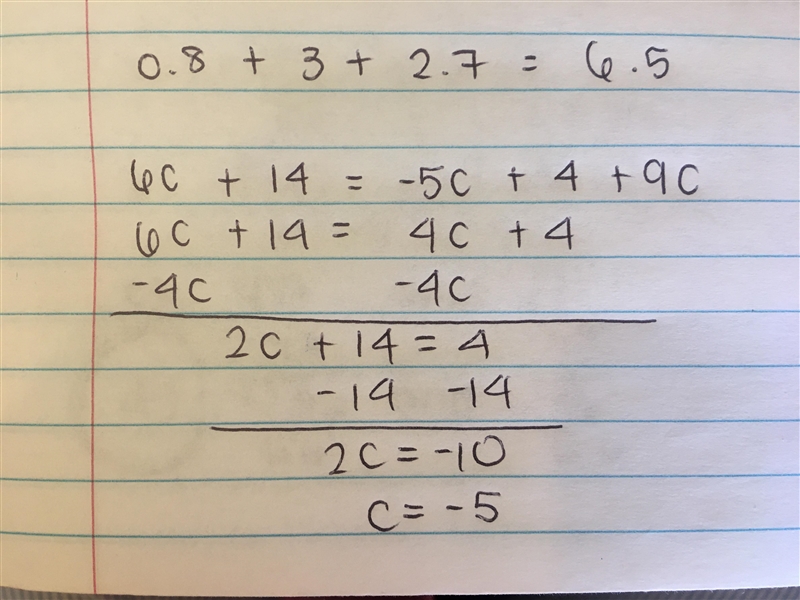 0.8 + 3 + 2.7 = 6.5
6c + 14 = -5c + 4 + 9c
6c + 14 = 4c + 4
-4c -4c
2c + 14 = 4
-14 -14
2c = -10
c = -5